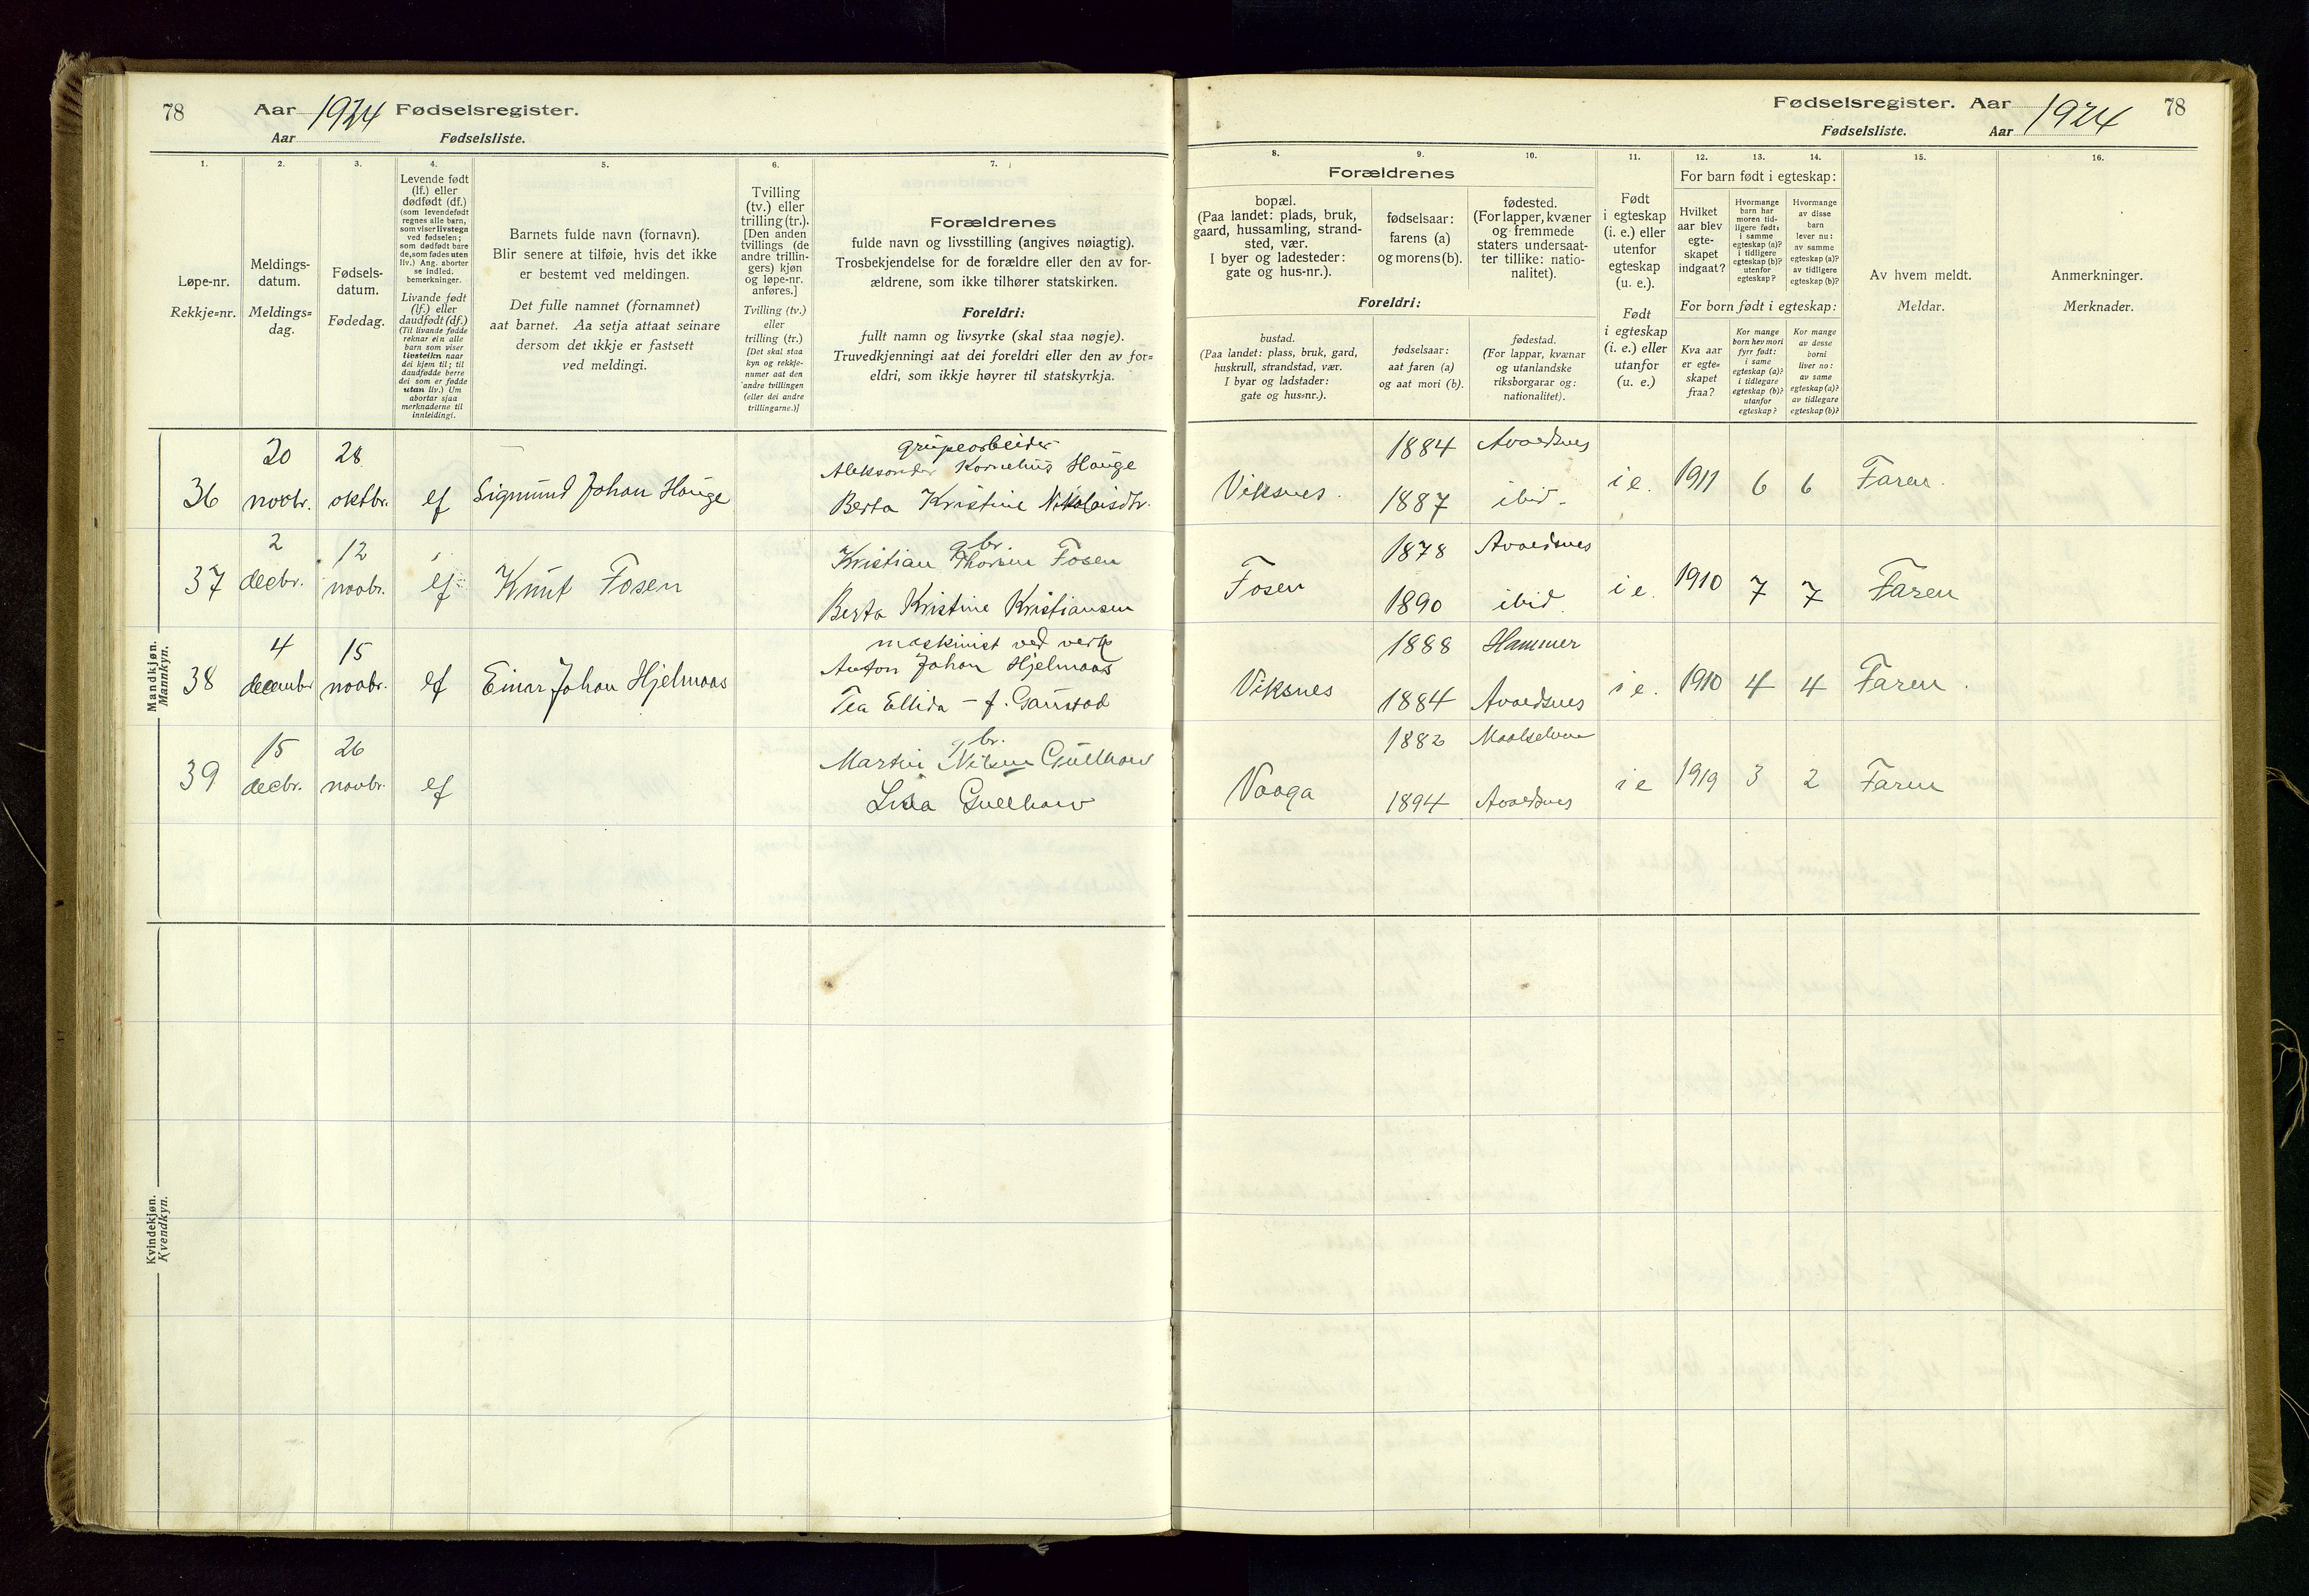 78 Aar 1924 Fødselsregister.
Aar Fødselsliste.
1. 2. 3. 4. 5. 6. 7.
Løpe-nr.
Rekkje=nr.
Meldings-
datum.
Meldings=
dag.
Fødsels-
datum.
Fødedag.
Levende født
(lf.) eller
dødfødt (df.)
(som levendefødt
regnes alle barn,
som viser livstegn
ved fødselen;
som dødfødt bare
de, som fødes uten
liv.) Ang. aborter
se indled.
bemerkninger.
Livande født
(lf.) eller
daudfødt (df.)
(Til livande fødde
reknar ein alle
barn som viser
livsteikn naar
dei kjem til; til
daudfødde berre
dei som er fødde
utan liv.) Um
abortar sjaa
merknaderne til
innleidingi.
Barnets fulde navn (fornavn).
Blir senere at tilføie, hvis det ikke
er bestemt ved meldingen.
Det fulle namnet (fornamnet)
aat barnet. Aa setja attaat seinare
dersom det ikkje er fastsett
ved meldingi.
Tvilling
(tv.) eller
trilling (tr.).
[Den anden
tvillings (de
andre trillin-
gers) kjøn
og løpe-nr.
anføres.]
Tvilling (tv.)
eller
trilling (tr.)
[Det skal staa
kyn og rekkje-
numer aat den
andre tvillingen
(eller dei andre
trillingarne.)]
Forældrenes
fulde navn og livsstilling (angives nøiagtig).
Trosbekjendelse for de forældre eller den av for-
ældrene, som ikke tilhører statskirken.
Foreldri:
fullt namn og livsyrke (skal staa nøgje).
Truvedkjenningi aat dei foreldri eller den av for=
eldri, som ikkje høyrer til statskyrkja.
Mandkjøn.
Mannkyn.
36 20 novbr. 28 oktbr. lf Sigmund Johan Hauge
grubearbeider
Aleksander Kornelius Hauge
Berta Kristine Nikolaisdtr.
37 2 decbr. 12 novbr. lf Knut Fosen
gbr.
Kristian Thorsen Fosen
Berta Kristine Kristiansen
38 4 decembr 15 novbr. lf Einar Johan Hjelmaas
maskinist ved verk
Anton Johan Hjelmaas
Tea Ellida – f. Gaustad
39 15 decbr. 26 novbr. lf
gbr.
Martin Nilsen Gullhav
Lina Gullhav
Kvindekjøn.
Kvendkyn.
Fødselsregister. Aar 1924 78
Fødselsliste. Aar
8. 9. 10. 11. 12. 13. 14. 15. 16.
Forældrenes
bopæl.
(Paa landet: plads, bruk,
gaard, hussamling, strand-
sted, vær.
I byer og ladesteder:
gate og hus-nr.).
fødselsaar:
farens (a)
og morens (b).
fødested.
(For lapper, kvæner
og fremmede
staters undersaat-
ter tillike: natio-
nalitet).
Foreldri:
bustad.
(Paa landet: plass, bruk, gard,
huskrull, strandstad, vær.
I byar og ladstader:
gate og hus=nr.).
fødselsaar:
aat faren (a)
og aat mori (b).
fødestad.
(For lappar, kvænar
og utanlandske
riksborgarar og:
nationalitet).
Født
i egteskap
(i. e.) eller
utenfor
egteskap
(u. e.).
Født
i egteskap
(i. e.) eller
utanfor
(u. e.)
For barn født i egteskap:
Hvilket
aar blev
egte-
skapet
indgaat?
Hvormange
barn har
moren tid-
ligere født:
i samme
egteskap (a)?
i tidligere
egteskap (b)?
utenfor
egteskap?
Hvormange
av disse
barn
lever nu:
av samme
egteskap (a)?
av tidligere
egteskap (b)?
For born født i egteskap:
Kva aar
er egte=
skapet
fraa?
Kor mange
born hev mori
fyrr født:
i same
egteskap (a)?
i tidlegare
egteskap (b)?
utanfor
egteskap?
Kor mange
av desse
borni
liver no:
av same
egteskap (a)?
av tidlegare
egteskap (b)?
Av hvem meldt.
Meldar.
Anmerkninger.
Merknader.
Viksnes. 1884 Avaldsnes
1887 ibid. i e. 1911 6 6 Faren.
Fosen 1878 Avaldsnes
1890 ibid. i e. 1910 7 7 Faren
Viksnes 1888 Hammer
1884 Avaldsnes i e. 1910 4 4 Faren.
Vaaga 1882 Maalselven
1894 Avaldsnes i e 1919 3 2 Faren